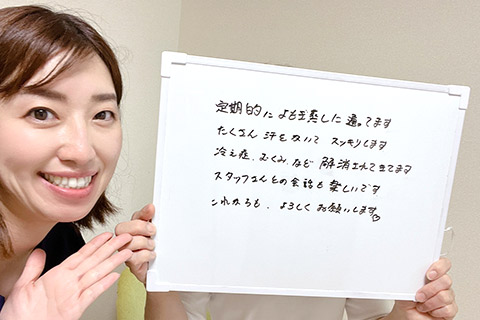 定期的によもぎ蒸しに通ってます
たくさん汗をかいて スッキリします
冷え症、むくみなど 解消されて来てます
スタッフさんとの会話も楽しいです
これからも、よろしくお願いします♡